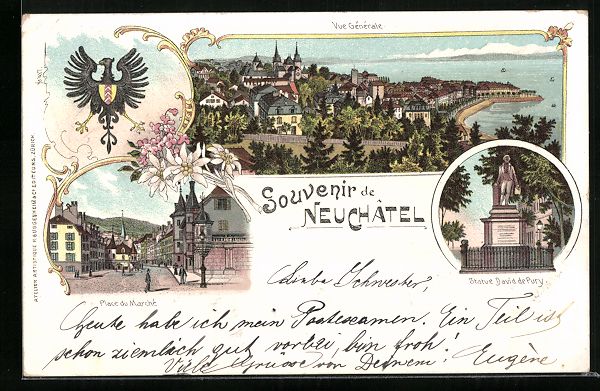 Vue Générale
Souvenir de
NEUCHÂTEL
Place du Marché
Statue David de Pury.
ATELIER ARTISTIQUE H. GUGGENHEIM & Cº EDITEURS, ZÜRICH
Liebe Schwester,
Heute habe ich mein Postexamen. Ein Teil ist
schon ziemlich gut vorbei, bin froh!
Viele Grüsse von Deinem Eugène.